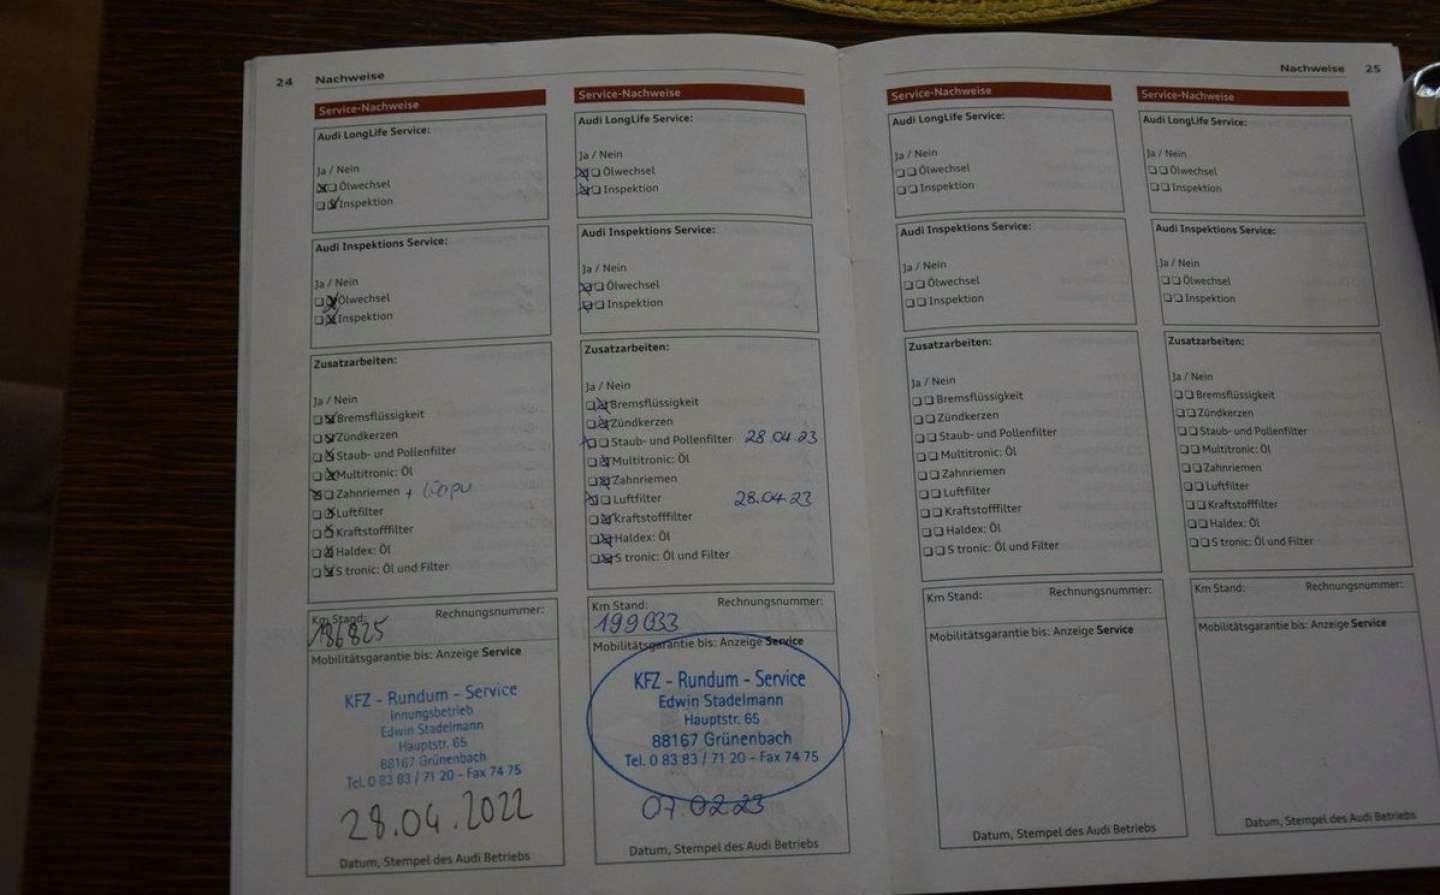 24 Nachweise
Service-Nachweise
Audi LongLife Service:
Ja / Nein
Ölwechsel
Inspektion
Audi Inspektions Service:
Ja / Nein
Ölwechsel
Inspektion
Zusatzarbeiten:
Ja / Nein
Bremsflüssigkeit
Zündkerzen
Staub- und Pollenfilter
Multitronic: Öl
Zahnriemen +
Luftfilter
Kraftstofffilter
Haldex: Öl
S tronic: Öl und Filter
Km Stand: Rechnungsnummer:
186825
Mobilitätsgarantie bis: Anzeige Service
KFZ - Rundum - Service
Innungsbetrieb
Edwin Stadelmann
Hauptstr. 65
88167 Grünenbach
Tel. 0 83 83 / 71 20 - Fax 74 75
28.04.2022
Datum, Stempel des Audi Betriebs
Service-Nachweise
Audi LongLife Service:
Ja / Nein
Ölwechsel
Inspektion
Audi Inspektions Service:
Ja / Nein
Ölwechsel
Inspektion
Zusatzarbeiten:
Ja / Nein
Bremsflüssigkeit
Zündkerzen
Staub- und Pollenfilter 28.04.23
Multitronic: Öl
Zahnriemen
Luftfilter 28.04.23
Kraftstofffilter
Haldex: Öl
S tronic: Öl und Filter
Km Stand: Rechnungsnummer:
199033
Mobilitätsgarantie bis: Anzeige Service
KFZ - Rundum - Service
Edwin Stadelmann
Hauptstr. 65
88167 Grünenbach
Tel. 0 83 83 / 71 20 - Fax 74 75
07.02.23
Datum, Stempel des Audi Betriebs
Nachweise 25
Service-Nachweise
Audi LongLife Service:
Ja / Nein
Ölwechsel
Inspektion
Audi Inspektions Service:
Ja / Nein
Ölwechsel
Inspektion
Zusatzarbeiten:
Ja / Nein
Bremsflüssigkeit
Zündkerzen
Staub- und Pollenfilter
Multitronic: Öl
Zahnriemen
Luftfilter
Kraftstofffilter
Haldex: Öl
S tronic: Öl und Filter
Km Stand: Rechnungsnummer:
Mobilitätsgarantie bis: Anzeige Service
Datum, Stempel des Audi Betriebs
Service-Nachweise
Audi LongLife Service:
Ja / Nein
Ölwechsel
Inspektion
Audi Inspektions Service:
Ja / Nein
Ölwechsel
Inspektion
Zusatzarbeiten:
Ja / Nein
Bremsflüssigkeit
Zündkerzen
Staub- und Pollenfilter
Multitronic: Öl
Zahnriemen
Luftfilter
Kraftstofffilter
Haldex: Öl
S tronic: Öl und Filter
Km Stand: Rechnungsnummer:
Mobilitätsgarantie bis: Anzeige Service
Datum, Stempel des Audi Betriebs